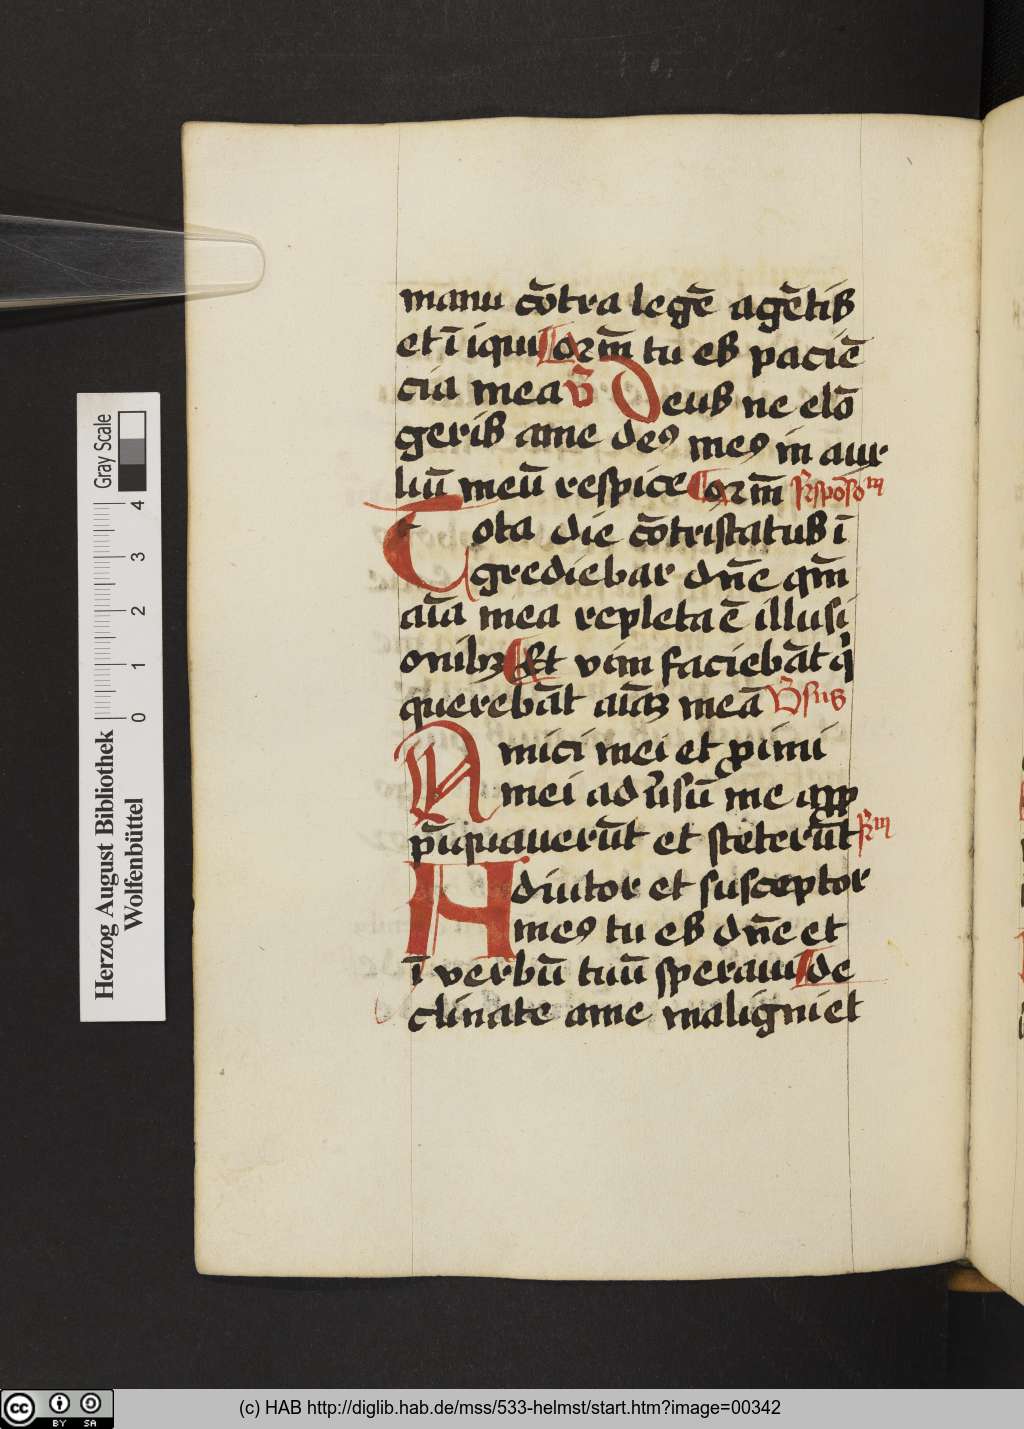 manu cōtra legē agētis
et ī iqui Qrm̄ tu es paciē
cia mea v̄ Deus ne elō
geris ame deꝰ meꝰ in aur
liū meū respice Qrm̄ Rspōsom
Tota die cōtristatus ī
grediebar dn̄e qm̄
aīa mea repleta ē illusi
onibꝫ Et vim faciebāt q̇
querebāt aīaꝫ meā Vsus
Amici mei et ꝓximi
mei aduͥsū me app
p̄īquauerūt et steterūt Rm
Adiutor et susceptor
meꝰ tu es dn̄e et
ī verbū tuū speraui de
clinate ame maligni et
Gray Scale
0 1 2 3 4
Herzog August Bibliothek
Wolfenbüttel
(c) HAB http://diglib.hab.de/mss/533-helmst/start.htm?image=00342
cc BY SA